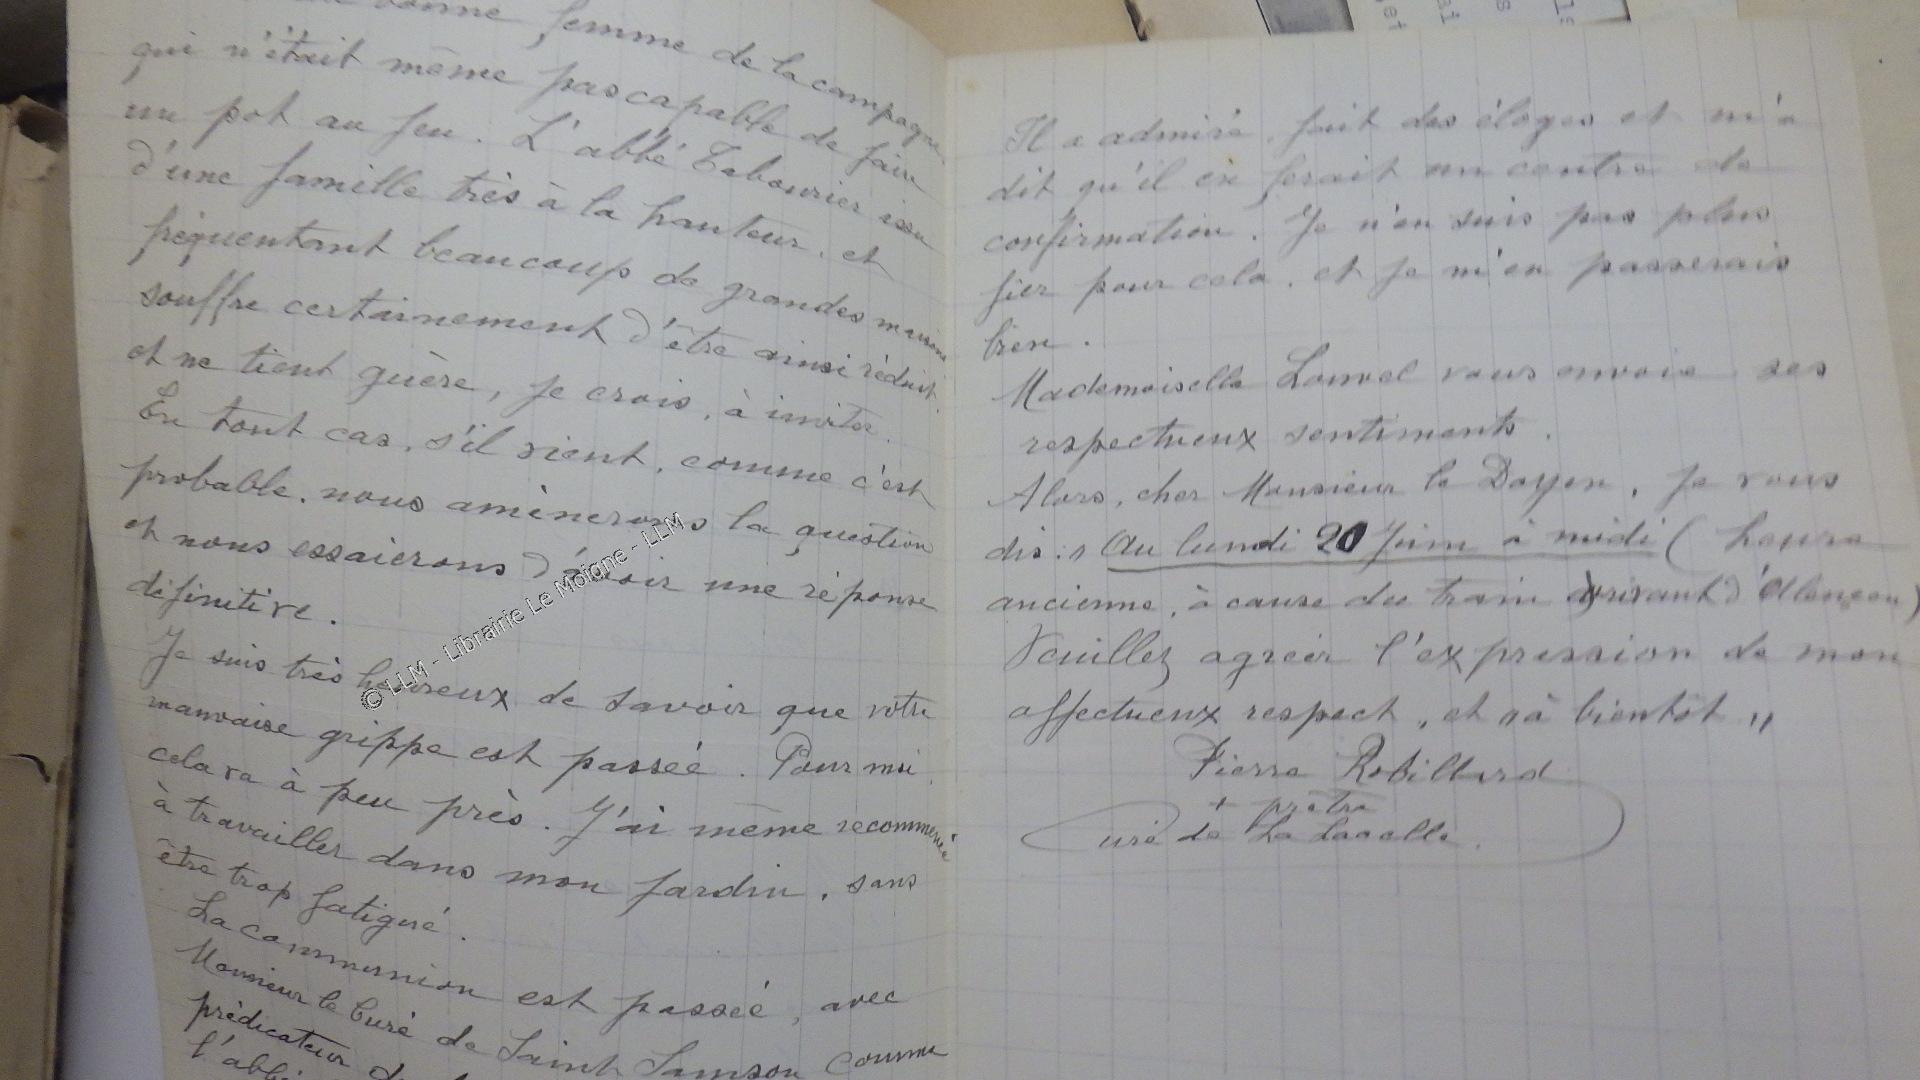 bonne femme de la campagne
qui n'était même pas capable de faire
un pot au feu. L'abbé Tabourier issu
d'une famille très à la hauteur, et
fréquentant beaucoup de grandes maisons
souffre certainement d'être ainsi réduit
et ne tient guère, je crois, à inviter.
En tout cas, s'il vient, comme c'est
probable, nous amènerons la question
et nous essaierons d'avoir une réponse
définitive.
Je suis très heureux de savoir que votre
mauvaise grippe est passée. Pour moi,
cela va à peu près. J'ai même recommencé
à travailler dans mon jardin, sans
être trop fatigué.
La communion est passée, avec
Monsieur le Curé de Saint Samson comme
prédicateur
l'abbé
Il a admiré, fait des éloges et m'a
dit qu'il en ferait un centre de
confirmation. Je n'en suis pas plus
fier pour cela, et je m'en passerais
bien.
Mademoiselle Louvel vous envoie ses
respectueux sentiments.
Alors, cher Monsieur le Doyen, je vous
dis : au lundi 20 Juin à midi (heure
ancienne, à cause du train arrivant d'Alençon)
Veuillez agréer l'expression de mon
affectueux respect, et à bientôt "
Pierre Robillard
+ prêtre
curé de La Lacelle.
© LLM - Librairie Le Moigne - LLM